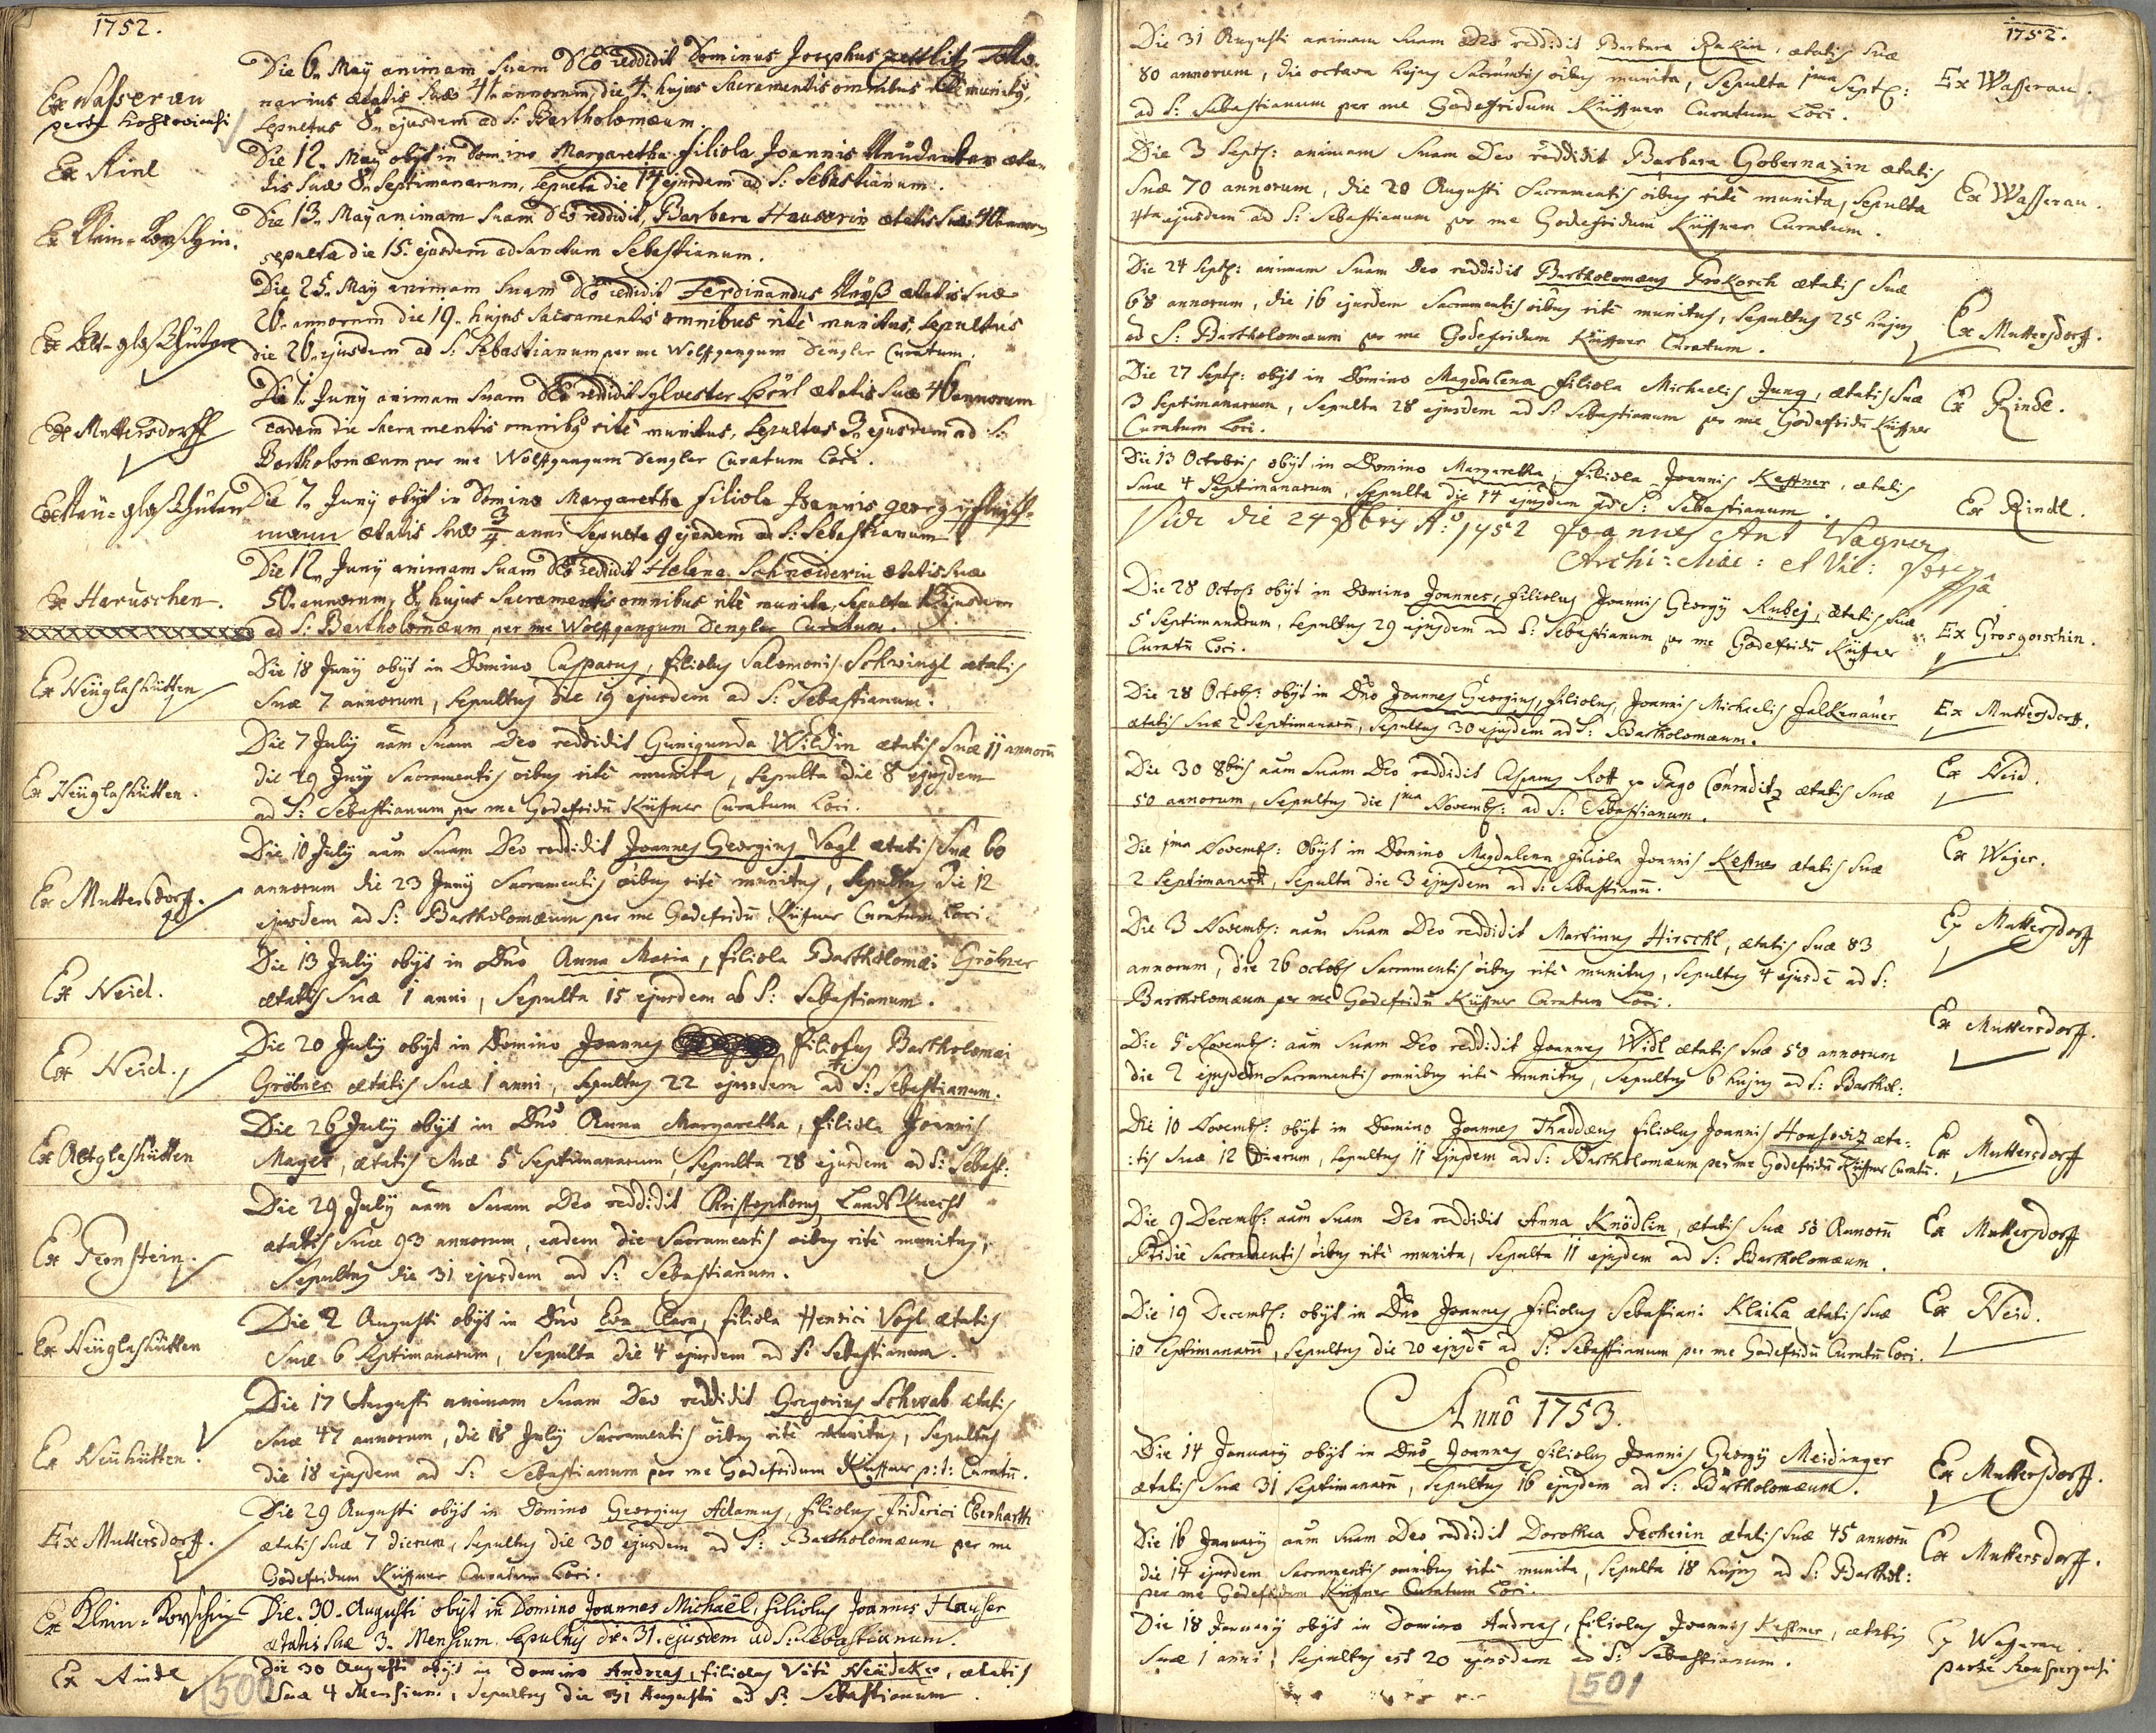 1752.
Ex Wasserau
Die 6. May animam suam Deo reddidit Dominus Josephus
narius ætatis suæ annorum, die 4. hujus Sacramentis omnibus munitus,
sepultus 8. ejusdem ad S: Bartholomæum.
Ex Rindl
Die 12. May obijt in Domino Margaretha filiola Joannis æta-
tis suæ 8. septimanarum, sepulta die 14 ejusdem ad S: Sebastianum.
Ex Klein-Gorschin.
Die 13. May animam suam Deo reddidit, Barbara Hauserin ætatis suæ
sepulta die 15. ejusdem ad Sanctum Sebastianum.
Ex Alt-glashütten
Die 25. May animam suam Deo reddidit Ferdinandus ætatis suæ
20. annorum die 19. hujus Sacramentis omnibus ritè munitus, sepultus
die ejusdem ad S: Sebastianum, per me Wolffgangum Dengler Curatum.
Ex Muttersdorff
Die 1. Juny animam suam Deo reddidit Sylvester ætatis suæ annorum
eadem die sacramentis omnibg ritè munitus, sepultus 3. ejusdem ad S:
Bartholomæum per me Wolffgangum Dengler Curatum Loci.
Ex Neü-glashüten
Die 7. Juny obijt in Domino Margaretha filiola Joannis georgy
mann ætatis suæ 3/4 anni sepulta 9 ejusdem ad S: Sebastianum
Ex Haruschen.
Die 12. Juny animam suam Deo reddidit Helena Schneiderin ætatis suæ
50. annorum, 8. hujus Sacramentis omnibus ritè munita, sepulta ejusdem
ad S: Bartholomæum, per me Wolffgangum Dengler Curatum.
Ex Neüglashütten
Die 18 Juny obijt in Domino Casparus, filiolus Salomonis Schwingl ætatis
suæ 7 annorum, sepultus die 19 ejusdem ad S: Sebastianum.
Ex Neüglashütten.
Die 7 July aam suam Deo reddidit Gunigunda Wildin ætatis suæ 11 annorū
die 29 Juny Sacramentis oibus ritè munita, sepulta die 8 ejusdem
ad S: Sebastianum per me Godefridū Küffner Curatum Loci.
Ex Muttersdorff.
Die 10 July aam suam Deo reddidit Joannes Georgius Vogl ætatis suæ 60
annorum die 23 Juny Sacramentis oibus ritè munitus, sepultus die 12
ejusdem ad S: Bartholomæum per me Godefridū Küffner Curatum Loci.
Ex Neid.
Die 13 July obijt in Dnō Anna Maria, filiola Bartholomæi Gröbner
ætatis suæ 1 anni, sepulta 15 ejusdem ad S: Sebastianum.
Ex Neid.
Die 20 July obijt in Domino Joannes filiolus Bartholomæi
Gröbner ætatis suæ 1 anni, sepultus 22 ejusdem ad S: Sebastianum.
Ex Altglashütten
Die 26 July obijt in Dnō Anna Margaretha, filiola Joannis
Mager, ætatis suæ 5 septimanarum, sepulta 28 ejusdem ad S: Sebast:
Ex Fronstein.
Die 29 July aam suam Deo reddidit Christophorus Landsknecht
ætatis suæ 93 annorum, eadem die Sacramentis oibus ritè munitus,
sepultus die 31 ejusdem ad S: Sebastianum.
Ex Neüglashütten
Die 2 Augusti obijt in Dnō Eva Clara, filiola Henrici Vogl ætatis
suæ 6 septimanarum, sepulta die 4 ejusdem ad S: Sebastianum.
Ex Neühütten.
Die 17 Augusti animam suam Deo reddidit Gregorius Schwab ætatis
suæ 47 annorum, die 18 July Sacramentis oibus ritè munitus, sepultus
die 18 ejusdem ad S: Sebastianum per me Godefridum Küffner p:t: Curatū.
Ex Muttersdorff.
Die 29 Augusti obijt in Domino Georgius Adamus, filiolus Friderici Eberharth
ætatis suæ 7 dierum, sepultus die 30 ejusdem ad S: Bartholomæum per me
Godefridum Küffner Curatum Loci.
Ex Klein-Gorschin
Die. 30. Augusti obijt in Domino Joannes Michaël, filiolus Joannis Hauser
ætatis suæ 3. Mensium. sepultus die. 31. ejusdem ad S: Sebastianum.
Ex Rindl
Die 30 Augusti obijt in Domino Andreas, filiolus Viti ætatis
suæ 4 Mensium, sepultus die 31 Augusti ad S: Sebastianum.
500
1752.
Die 31 Augusti animam suam Deo reddidit Barbara Rakin, ætatis suæ
80 annorum, die octava hujus Sacramentis oibus munita, sepulta 1ma Septb:
ad S: Sebastianum per me Godefridum Küffner Curatum Loci.
Ex Wasserau.
Die 3 Septb: animam suam Deo reddidit Barbara Gobernazin ætatis
suæ 70 annorum, die 20 Augusti Sacramentis oibus ritè munita, sepulta
4ta ejusdem ad S: Sebastianum per me Godefridum Küffner Curatum.
Ex Wasserau.
Die 24 Septb: animam suam Deo reddidit Bartholomæus Prokosch ætatis suæ
68 annorum, die 16 ejusdem Sacramentis oibus ritè munitus, sepultus 25 hujus
ad S: Bartholomæum per me Godefridum Küffner Curatum.
Ex Muttersdorff.
Die 27 Septb: obijt in Domino Magdalena filiola Michaelis Jung, ætatis suæ
3 septimanarum, sepulta 28 ejusdem ad S: Sebastianum per me Godefridū Küffner
Curatum Loci.
Ex Rindl.
Die 13 Octobris obijt in Domino Margaretha, filiola Joannis Kestner, ætatis
suæ 4 septimanarum, sepulta die 14 ejusdem ad S: Sebastianum.
Ex Rindl.
Vidi die 24 8bris Aō: 1752 Joannes Ant Wagner
Archi: et Vic:
Die 28 Octob: obijt in Domino Joannes, filiolus Joannis Georgy Rubej, ætatis suæ
5 septimanarum, sepultus 29 ejusdem ad S: Sebastianum per me Godefridū Küffner
Curatū Loci.
Ex Grosgorschin.
Die 28 Octob: obijt in Dnō Joannes Georgius, filiolus Joannis Michaelis Falkenauer
ætatis suæ 2 septimanarū, sepultus 30 ejusdem ad S: Bartholomæum.
Ex Muttersdorff.
Die 30 8bris aam suam Deo reddidit Casparus Rott ex Pago Conraditz ætatis suæ
50 annorum, sepultus die 1ma Novemb: ad S: Sebastianum.
Ex Neid.
Die 1ma Novemb: obijt in Domino Magdalena filiola Joannis Kestner ætatis suæ
2 septimanarū, sepulta die 3 ejusdem ad S: Sebastianū.
Ex Wajer.
Die 3 Novemb: aam suam Deo reddidit Martinus Hirschl, ætatis suæ 83
annorum, die 26 octob: Sacramentis oibus ritè munitus, sepultus 4 ejusdē ad S:
Bartholomæum per me Godefridū Küffner Curatum Loci.
Ex Muttersdorff
Die 5 Novemb: aam suam Deo reddidit Joannes Widl ætatis suæ 50 annorum
die 2 ejusdem Sacramentis omnibus ritè munitus, sepultus 6 hujus ad S: Barthol:
Ex Muttersdorff.
Die 10 Novemb: obijt in Domino Joannes Thaddæus filiolus Joannis Honsowiz æta:
:tis suæ 12 Dierum, sepultus 11 ejusdem ad S: Bartholomæum per me Godefridū Küffner Curatū.
Ex Muttersdorff
Die 9 Decemb: aam suam Deo reddidit Anna Knödlin, ætatis suæ 58 Annorū
Pridie Sacramentis oibus ritè munita, sepulta 11 ejusdem ad S: Bartholomæum.
Ex Muttersdorff
Die 19 Decemb: obijt in Dnō Joannes filiolus Sebastiani Klaila ætatis suæ
10 septimanarū, sepultus die 20 ejusdē ad S: Sebastianum per me Godefridū Curatū Loci.
Ex Neid.
Annô 1753.
Die 14 January obijt in Dnō Joannes filiolus Joannis Georgy Meidinger
ætatis suæ 31 septimanarū, sepultus 16 ejusdem ad S: Bartholomæum.
Ex Muttersdorff.
Die 16 January aam suam Deo reddidit Dorothea Pecherin ætatis suæ 45 annorū
die 14 ejusdem Sacramentis omnibus ritè munita, sepulta 18 hujus ad S: Barthol:
per me Godefridum Küffner Curatum Loci.
Ex Muttersdorff.
Die 18 January obijt in Domino Andreas, filiolus Joannis Kestner, ætatis
suæ 1 anni, sepultus est 20 ejusdem ad S: Sebastianum.
Ex Wasserau
parte Ronspergensi
501